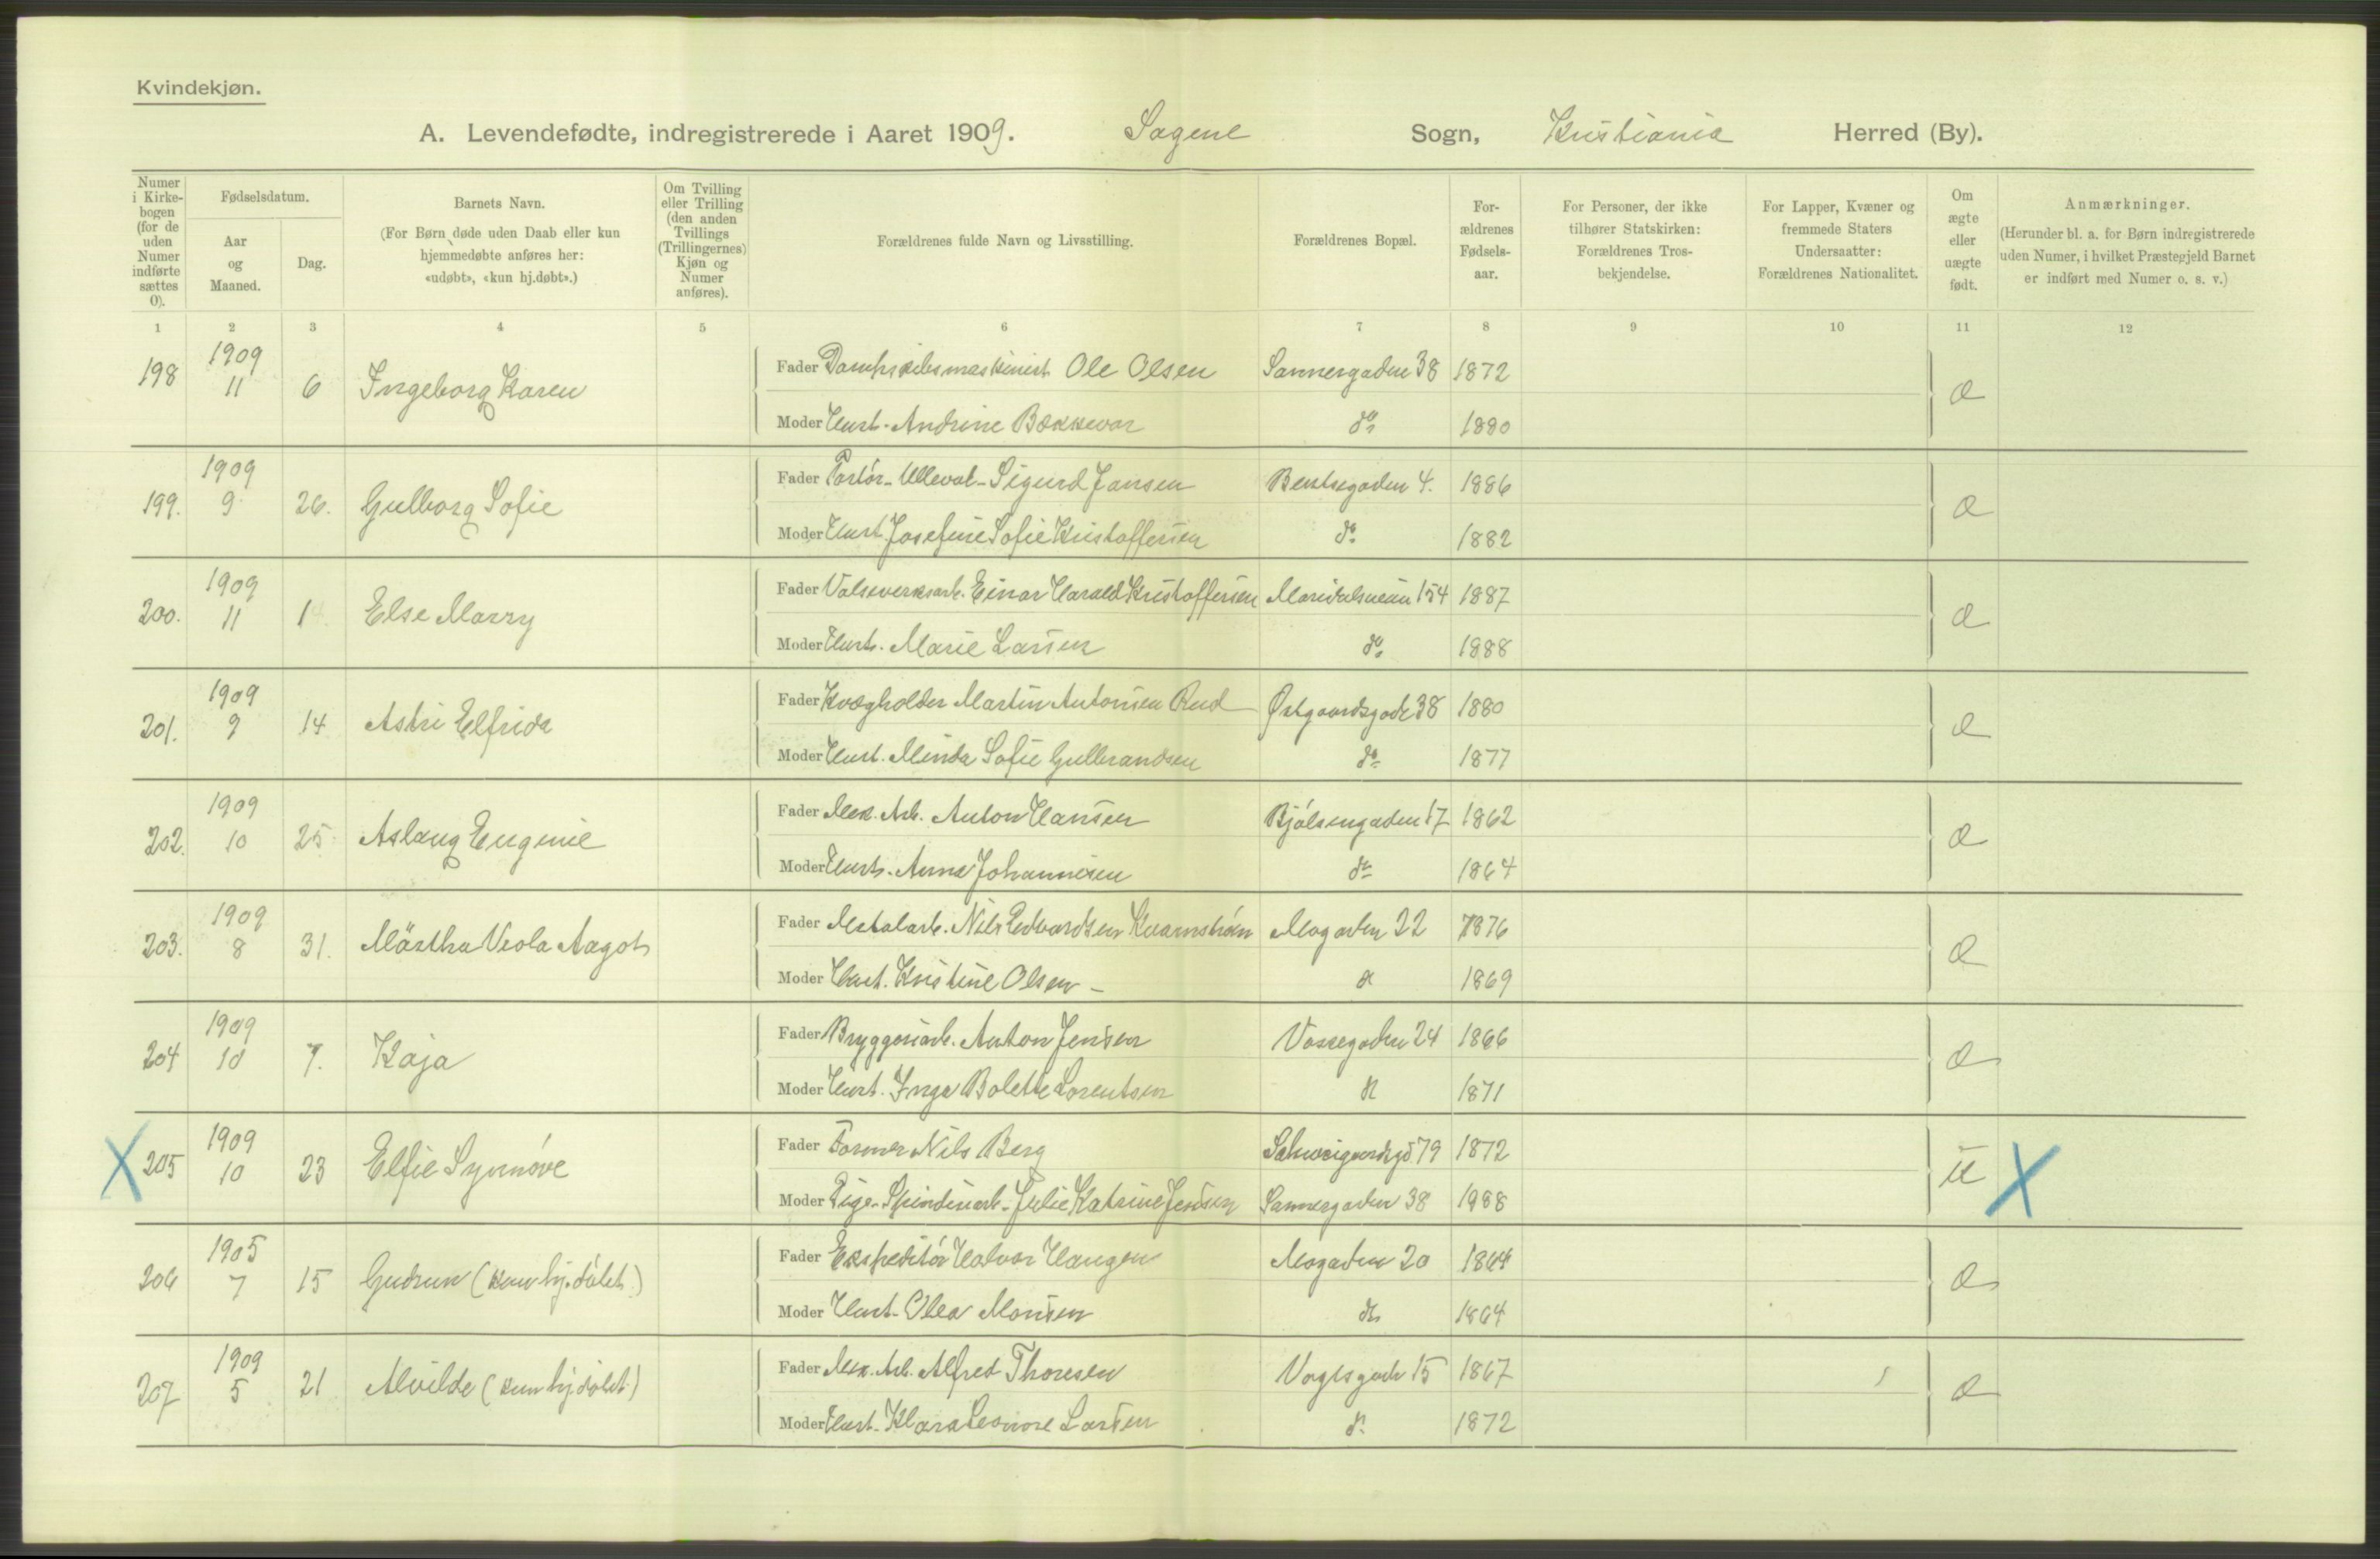 Kvindekjøn.
A. Levendefødte, indregistrerede i Aaret 1909. Sagene Sogn, Kristiania Herred (By).
Numer i Kirkebogen (for de uden Numer indførte sættes 0).
Fødselsdatum.
Aar og Maaned.
Dag.
Barnets Navn.
(For Børn døde uden Daab eller kun hjemmedøbte anføres her: «udøbt», «kun hj.døbt».)
Om Tvilling eller Trilling (den anden Tvillings (Trillingernes) Kjøn og Numer anføres).
Forældrenes fulde Navn og Livsstilling.
Forældrenes Bopæl.
Forældrenes Fødselsaar.
For Personer, der ikke tilhører Statskirken: Forældrenes Trosbekjendelse.
For Lapper, Kvæner og fremmede Staters Undersaatter: Forældrenes Nationalitet.
Om ægte eller uægte født.
Anmærkninger.
(Herunder bl. a. for Børn indregistrerede uden Numer, i hvilket Præstegjeld Barnet er indført med Numer o. s. v.)
1 2 3 4 5 6 7 8 9 10 11 12
198 1909 11 6 Ingeborg Karen Fader Dampskibsmaskinist Ole Olsen Sannergaden 38 1872 æ
Moder Hust. Andrine Bækkevar do 1880
199. 1909 9 26. Gulborg Sofie Fader Portør Ullevål Sigurd Jansen Bentsegaden 4. 1886 æ
Moder Hust. Josefine Sofie Kristoffersen do 1882
200. 1909 11 1 Else Marry Fader Valseverksarb. Einar Harald Kristoffersen Maridalsveien 154 1887 æ
Moder Hustr. Marie Larsen do 1888
201. 1909 9 14 Astri Elfrida Fader Kvægholder Martin Antonsen Rud Østgaardsgade 38 1880 æ
Moder Hust. Minda Sofie Gulbrandsen do 1877
202. 1909 10 25 Aslaug Eugenie Fader Mek. Arb. Anton Hansen Bjølsengaden 17 1862 æ
Moder Hustr. Anna Johannesen do 1864
203. 1909 8 31. Märtha Viola Aagot Fader Metalarb. Nils Edvardsen Kvarnstrøm Mogaden 22 1876 æ
Moder Hust. Kristine Olsen - do 1869
204 1909 10 7. Kaja Fader Bryggeriarb. Anton Jensen Vossegaden 24 1866 æ
Moder Hust. Inga Bolette Lorentsen do 1871
X 205 1909 10 23 Elfie Synnøve Fader Former Nils Berg Schweigaardsgd 79 1872 u X
Moder Pige. Spinderiarb. Julie Katrine Jensen Sannergaden 38 1988
206 1905 7 15 Gudrun (kun hj.døbt.) Fader Ekspeditør Halvor Haugen Mogaden 20 1864 æ
Moder Hust. Olea Monsen do 1864
207 1909 5 21 Alvilde (kun hj.døbt) Fader Mek. Arb. Alfred Thoresen Vogtsgade 15 1867 æ
Moder Hust. Klara Leonore Larsen do 1872